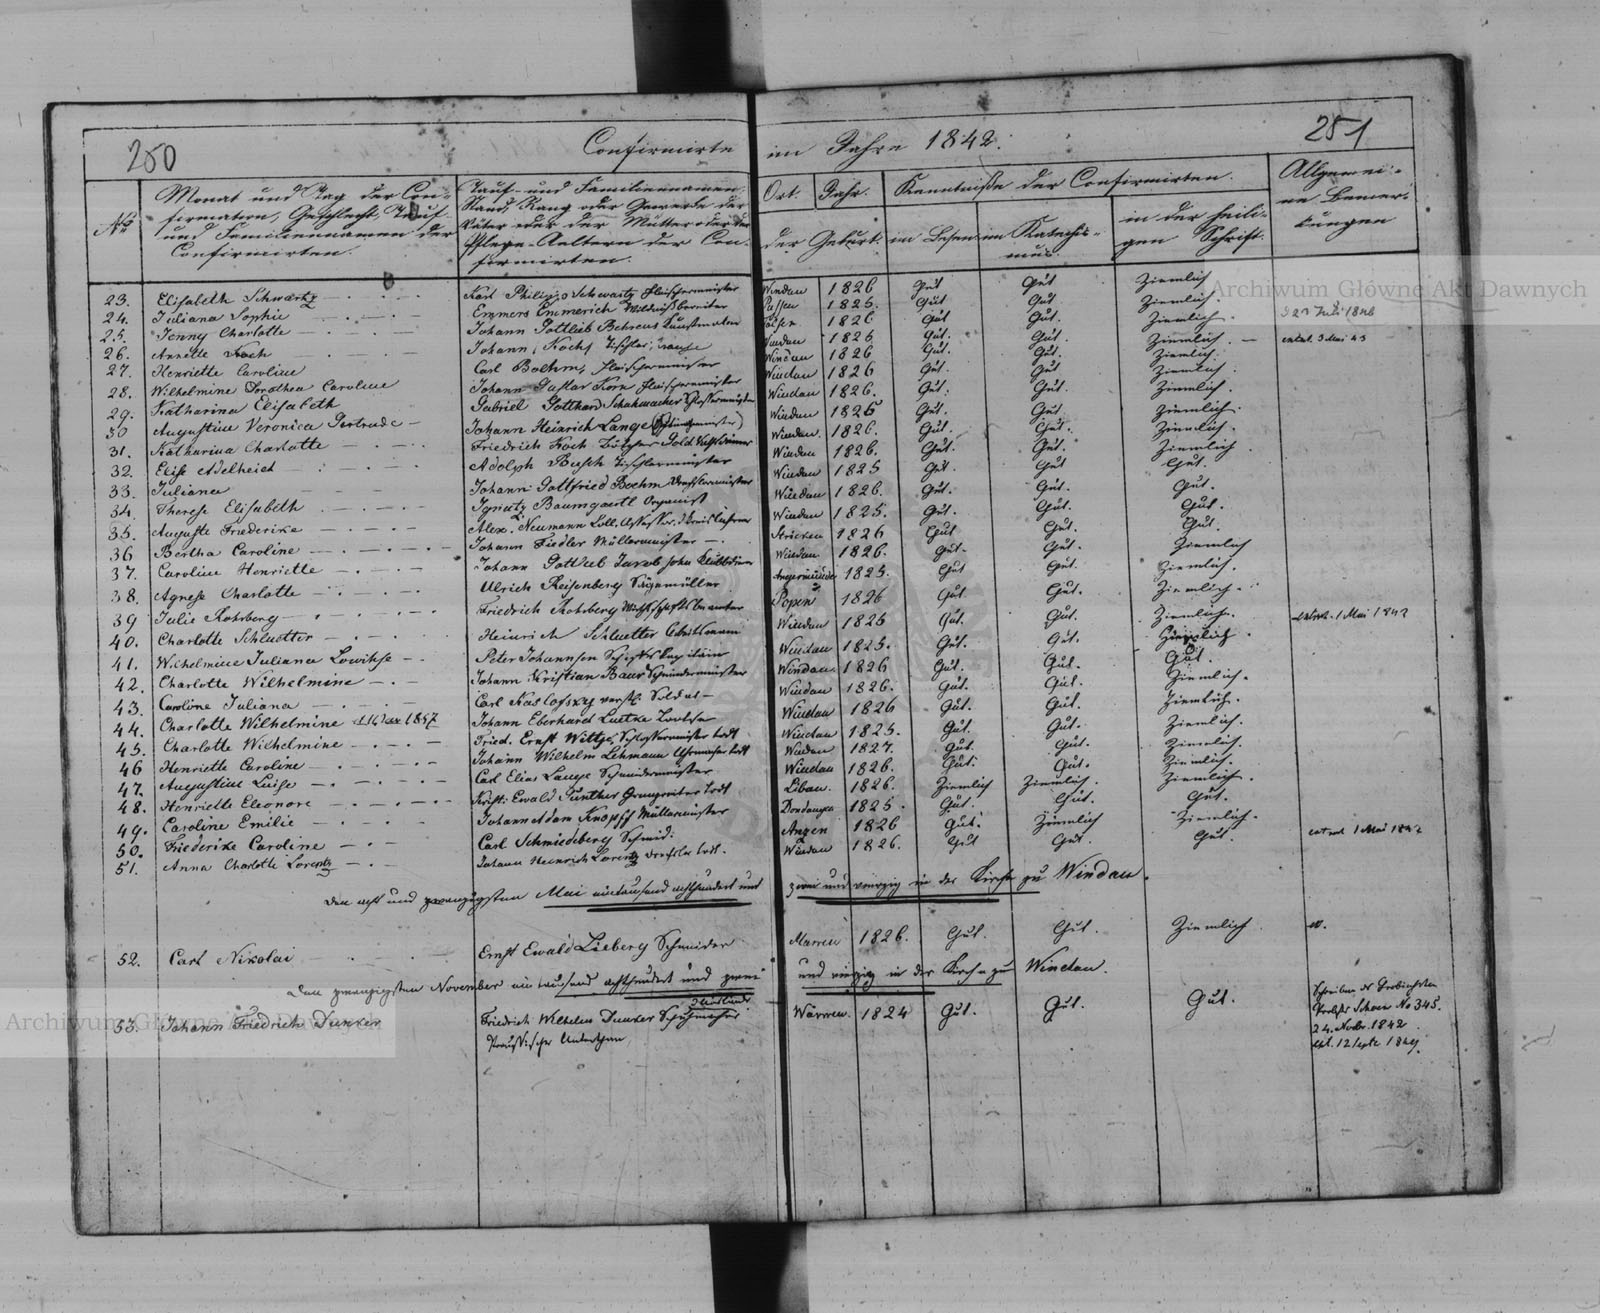 250
Confirmirte im Jahre 1842.
251
No
Monat und Tag der Confirmation, Geschlecht, Tauf- und Familiennamen der Confirmirten.
Tauf- und Familiennamen, Stand, Rang oder Gewerbe der Väter oder der Mütter oder der Pflege-Aeltern der Confirmirten.
Ort. Jahr.
der Geburt.
Kenntniße der Confirmirten.
im Lesen
im Katechismus
in der heiligen Schrift.
Allgemeine Bemerkungen
23. Elisabeth Schwartz Karl Philipp Schwartz Fleischermeister Windau 1826 Gut Gut Ziemlich
24. Juliana Sophie Emmers Emmerich Pussen 1825. Gut Gut Ziemlich.
25. Jenny Charlotte Johann Gottlieb Behrens 1826 Gut Gut. Ziemlich.
26. Annette Koch Johann Koch Tischler Windau 1826 Gut. Gut. Ziemlich. 3 Mai 43
27. Henriette Caroline Carl Boehm, Fleischermeister Windau 1826 Gut. Gut. Ziemlich.
28. Wilhelmine Dorothea Caroline Johann Gustav Korn Fleischermeister Windau 1826 Gut. Gut Ziemlich.
29. Katharina Elisabeth Gabriel Gotthard Schuhmacher Schlossermeister Windau 1826. Gut. Gut. Ziemlich.
30 Augustine Veronica Gertrude Johann Heinrich Lange Windau 1826 Gut. Gut Ziemlich.
31. Katharina Charlotte Friedrich Koch Windau. 1826. Gut. Gut. Ziemlich.
32. Elise Adelheid Adolph Busch Tischlermeister Windau 1826. Gut. Gut. Ziemlich
33. Juliana Johann Gottfried Boehm Windau 1825 Gut. Gut Gut.
34. Therese Elisabeth Ignatz Baumgartl Organist Windau 1826. Gut. Gut. Gut.
35. Auguste Friederike Alex. Neumann Windau 1825. Gut. Gut. Gut.
36 Bertha Caroline Johann Fiedler Müllermeister 1826 Gut Gut. Gut.
37. Caroline Henriette Johann Gottlieb Jacobsohn Windau 1826. Gut. Gut. Ziemlich
38. Agnese Charlotte Ulrich Reisenberg Sägemüller Angermünde 1825. Gut Gut. Ziemlich.
39 Julie Rohrberg Friedrich Rohrberg Popen 1826 Gut Gut. Ziemlich.
40. Charlotte Schluetter Heinrich Schluetter Windau 1826 Gut. Gut. Ziemlich. 1 Mai 1842
41. Wilhelmine Juliana Lowihse Peter Johannsen Schiffs Kapitain Windau 1825. Gut. Gut. Ziemlich.
42. Charlotte Wilhelmine Johann Kristian Baur Schneidermeister Windau 1826 Gut. Gut. Gut.
43. Caroline Juliana Carl Kaslofsky Soldat Windau 1826. Gut. Gut. Ziemlich.
44. Charlotte Wilhelmine 1857 Johann Eberhard Luetke Lootse Windau 1826 Gut. Gut. Ziemlich.
45. Charlotte Wilhelmine Fried. Ernst Wittge, Schlossermeister todt Windau 1825. Gut. Gut. Ziemlich.
46 Henriette Caroline Johann Wilhelm Lehmann Uhrmacher todt Windau 1827. Gut. Gut. Ziemlich.
47. Augustine Luise Carl Elias Lange Schneidermeister Windau 1826. Gut. Gut. Ziemlich.
48. Henriette Eleonore Kristi: Ewald Günther todt Libau. 1826. Ziemlich Ziemlich. Ziemlich.
49. Caroline Emilie Johann Adam Knopff Müllermeister Dondangen 1825. Gut. Gut. Gut.
50. Friederike Caroline Carl Schmiedeberg Schmid: Anzen 1826 Gut Ziemlich Ziemlich.
51. Anna Charlotte Lorentz Johann Heinrich Lorentz Drechsler todt. Windau 1826. Gut Gut. Gut 1 Mai 1842
Den acht und zwanzigsten Mai eintausend achthundert und zwei und vierzig in der Kirche zu Windau.
52. Carl Nikolai Ernst Ewald Lieberg Schneider Warwen 1826. Gut. Gut. Ziemlich.
Den zwanzigsten November eintausend achthundert und zwei und vierzig in der Kirche zu Windau.
53. Johann Friedrich Dunker Friedrich Wilhelm Dunker Schuhmacher Ausländer Preussischer Unterthan Warwen. 1824 Gut. Gut. Gut.
No 345.
24. Novbr. 1842
12 Septr. 1849.
Archiwum Główne Akt Dawnych
Archiwum Główne Akt Dawnych